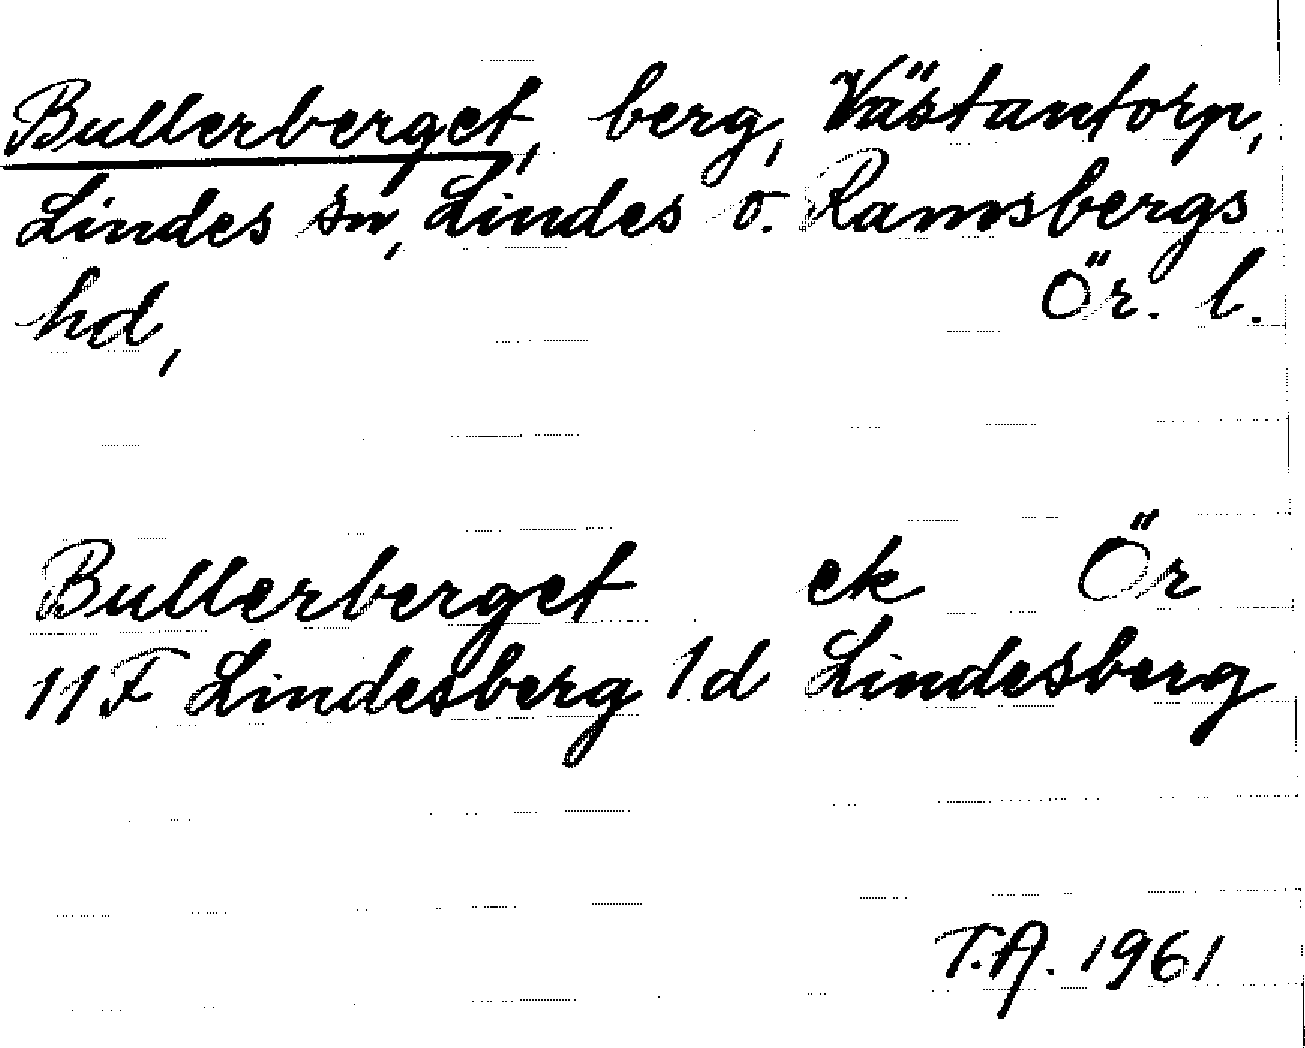 Bullerberget, berg, Västantorp,
Lindes sn, Lindes o. Ramsbergs
hd, Ör. l.
Bullerberget ek Ör
11F Lindesberg 1d Lindesberg
T.A. 1961